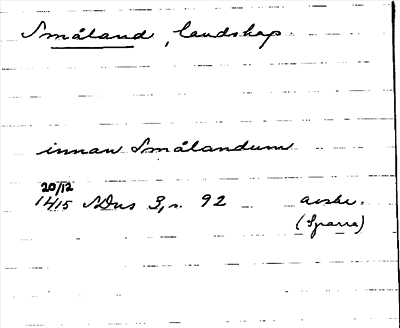 Småland, landskap
innan Smålandum
20/12
1415 SDns 3, s. 92 avskr.
(Sparre)